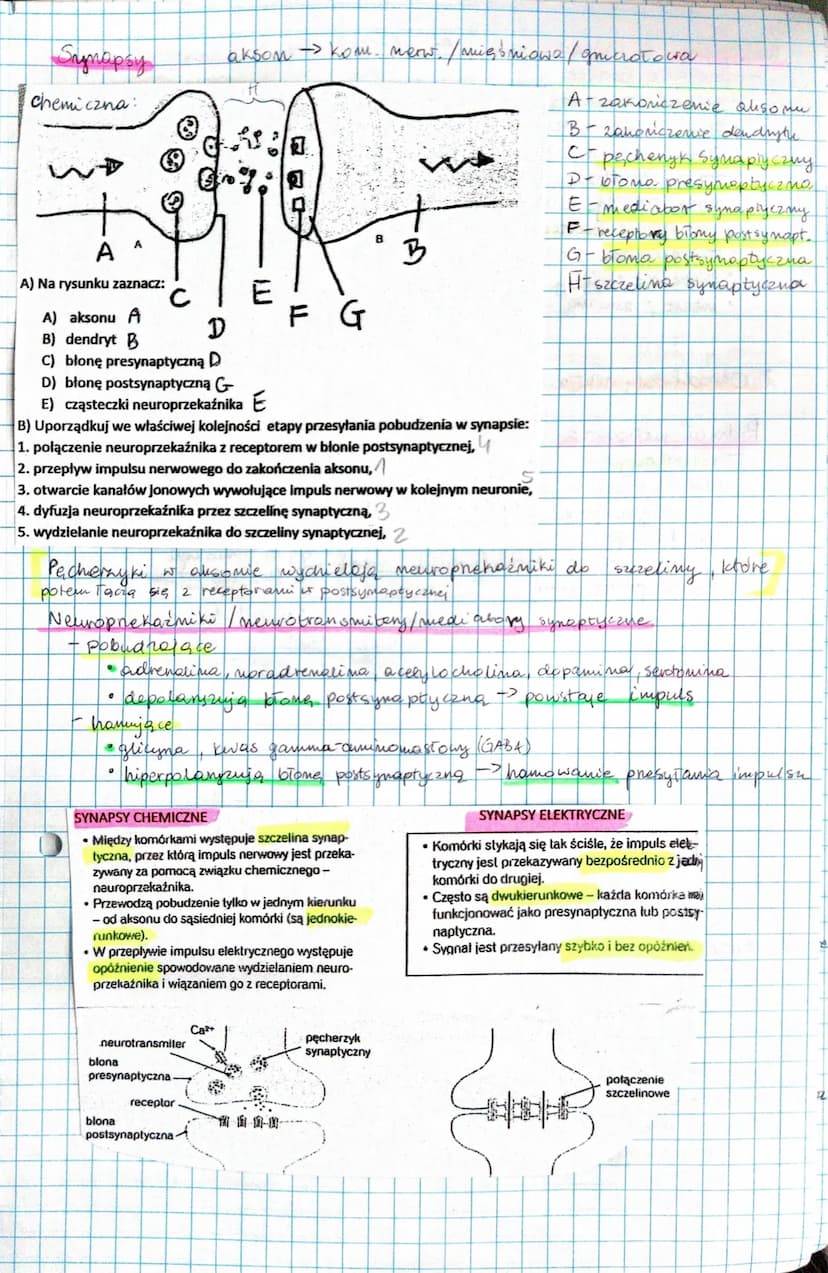 Synapsy
akson → kom. nerw. /mięśniowa/gruczołowa
chemiczna:
H
A
A
B
B
C
D
E
F
G
A - zakończenie aksonu
B - zakończenie dendrytu
C - pęcherzyk synaptyczny
D - błona presynaptyczna
E - mediator synaptyczny
F - receptory błony postsynapt.
G - błona postsynaptyczna
H - szczelina synaptyczna
A) Na rysunku zaznacz:
A) aksonu A
B) dendryt B
C) błonę presynaptyczną D
D) błonę postsynaptyczną G
E) cząsteczki neuroprzekaźnika E
B) Uporządkuj we właściwej kolejności etapy przesyłania pobudzenia w synapsie:
1. połączenie neuroprzekaźnika z receptorem w błonie postsynaptycznej, 4
2. przepływ impulsu nerwowego do zakończenia aksonu, 1
3. otwarcie kanałów jonowych wywołujące impuls nerwowy w kolejnym neuronie, 5
4. dyfuzja neuroprzekaźnika przez szczelinę synaptyczną, 3
5. wydzielanie neuroprzekaźnika do szczeliny synaptycznej, 2
Pęcherzyki w aksonie wydzielają neuroprzekaźniki do szczeliny, które
potem łączą się z receptorami w postsynaptycznej
Neuroprzekaźniki /neurotransmitery/mediatory synaptyczne
- pobudzające
• adrenalina, noradrenalina, acetylocholina, dopamina, serotonina
• depolaryzują błonę postsynaptyczną → powstaje impuls
- hamujące
• glicyna, kwas gamma-aminomasłowy (GABA)
• hiperpolaryzują błonę postsynaptyczną → hamowanie przesyłania impulsu
SYNAPSY CHEMICZNE
• Między komórkami występuje szczelina synap-
tyczna, przez którą impuls nerwowy jest przeka-
zywany za pomocą związku chemicznego –
neuroprzekaźnika.
• Przewodzą pobudzenie tylko w jednym kierunku
– od aksonu do sąsiedniej komórki (są jednokie-
runkowe).
• W przepływie impulsu elektrycznego występuje
opóźnienie spowodowane wydzielaniem neuro-
przekaźnika i wiązaniem go z receptorami.
SYNAPSY ELEKTRYCZNE
• Komórki stykają się tak ściśle, że impuls elek-
tryczny jest przekazywany bezpośrednio z jednej
komórki do drugiej.
• Często są dwukierunkowe – każda komórka może
funkcjonować jako presynaptyczna lub postsy-
naptyczna.
• Sygnał jest przesyłany szybko i bez opóźnień.
Ca²⁺
neurotransmiter
pęcherzyk
synaptyczny
błona
presynaptyczna
receptor
błona
postsynaptyczna
połączenie
szczelinowe